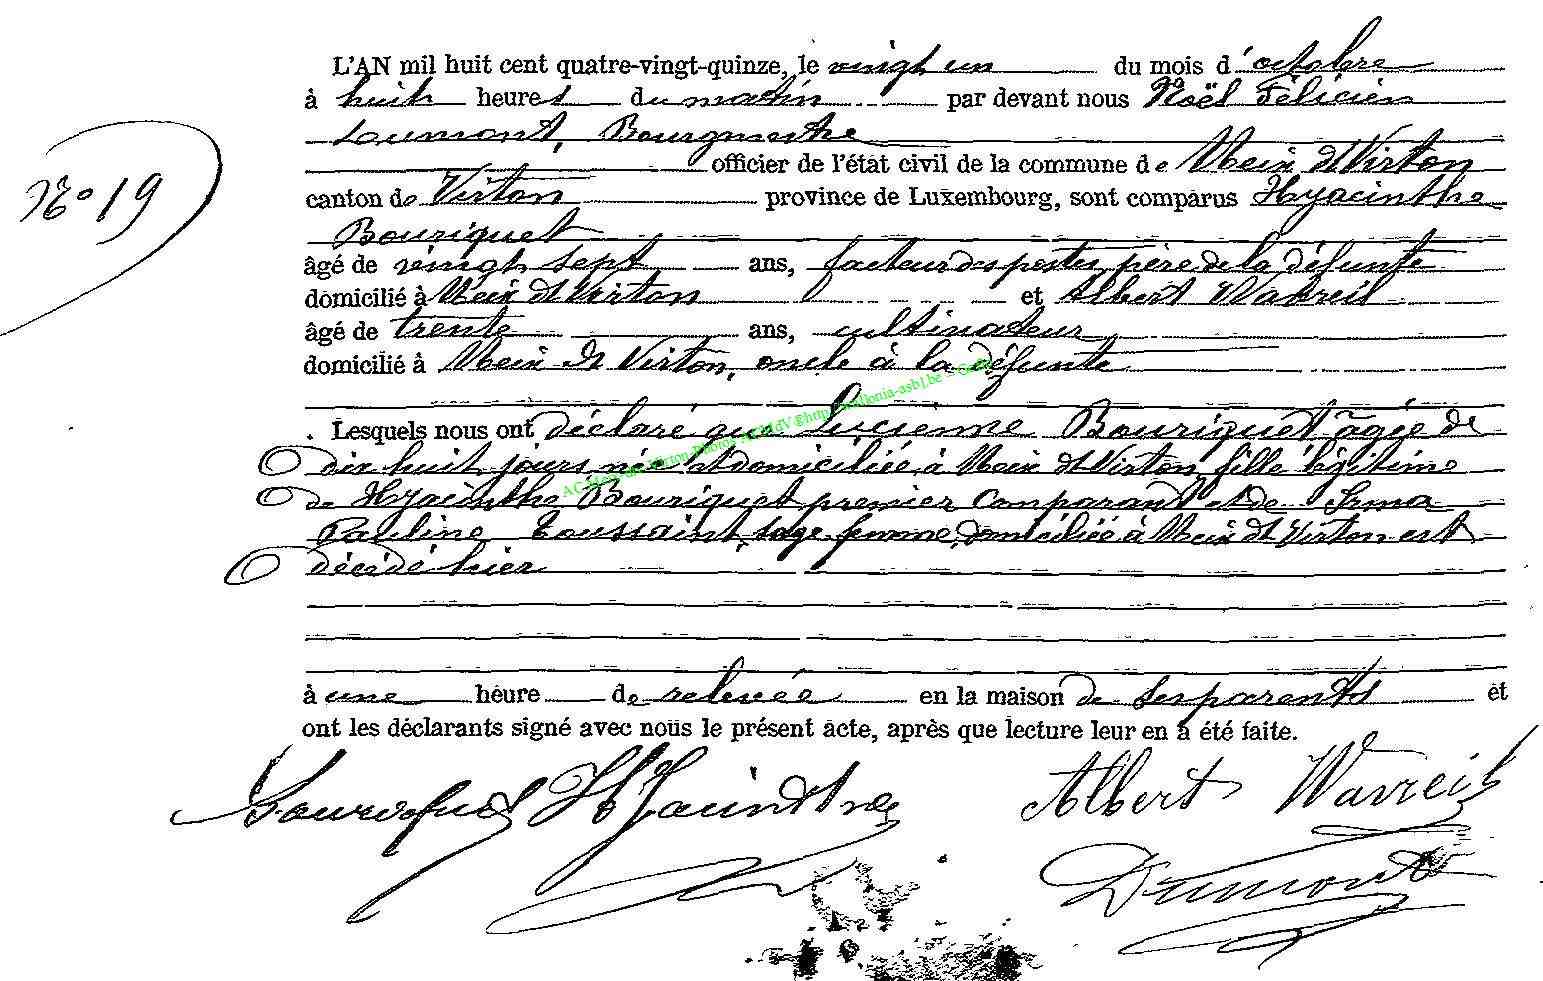 L'AN mil huit cent quatre-vingt-quinze, le vingt un du mois d'octobre
à huit heures du matin par devant nous Noël Félicien
Dumont, Bourgmestre
officier de l'état civil de la commune de Meix dt Virton
N° 19
canton de Virton province de Luxembourg, sont comparus Hyacinthe
Bouriquet
âgé de vingt sept ans, facteur des postes, père de la défunte
domicilié à Meix dt Virton et Albert Wavreil
âgé de trente ans, cultivateur
domicilié à Meix dt Virton, oncle à la défunte
Lesquels nous ont déclaré que Lucienne Bouriquet âgée de
dix huit jours née et domiciliée à Meix dt Virton fille légitime
de Hyacinthe Bouriquet premier comparant et de Irma
Pauline Toussaint, sage femme, domiciliée à Meix dt Virton est
décédé hier
à une heure de relevée en la maison de ses parents et
ont les déclarants signé avec nous le présent acte, après que lecture leur en a été faite.
Bouriquet Hyacinthe Albert Wavreil
Dumont